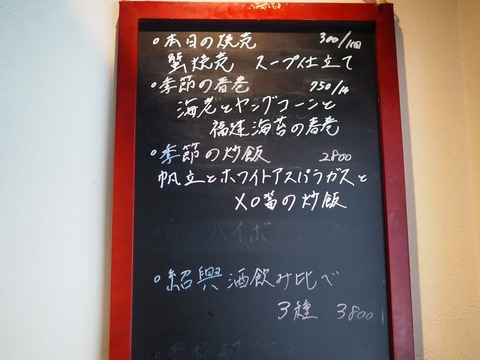 ○本日の焼売 300/1個
蟹焼売 スープ仕立て
○季節の春巻 750/1本
海老とヤングコーンと
福建海苔の春巻
○季節の炒飯 2800
帆立とホワイトアスパラガスと
XO醤の炒飯
○紹興酒飲み比べ
3種 3800